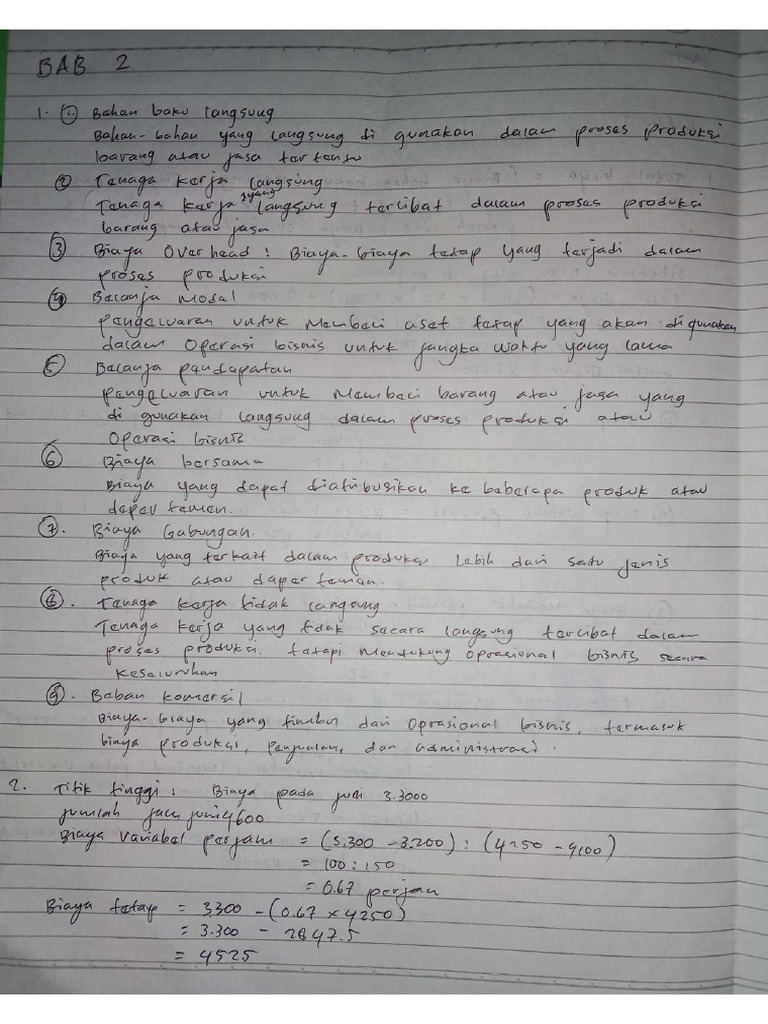 BAB 2
1. ①. Bahan baku langsung
Bahan-bahan yang langsung di gunakan dalam proses produksi
barang atau jasa tertentu
② Tenaga kerja langsung
Tenaga kerja yang langsung terlibat dalam proses produksi
barang atau jasa
③ Biaya Overhead : Biaya-biaya tetap yang terjadi dalam
proses produksi
④ Belanja Modal
Pengeluaran untuk Membeli aset tetap yang akan di gunakan
dalam Operasi bisnis untuk jangka waktu yang lama
⑤ Belanja pendapatan
pengeluaran untuk Membeli barang atau jasa yang
di gunakan langsung dalam proses produksi atau
Operasi bisnis
⑥ Biaya bersama
Biaya yang dapat diatribusikan ke beberapa produk atau
departemen.
⑦. Biaya Gabungan.
Biaya yang terkait dalam produksi lebih dari satu jenis
produk atau departemen.
⑧. Tenaga kerja tidak langsung
Tenaga kerja yang tidak secara langsung terlibat dalam
proses produksi. tetapi mendukung oprasional bisnis secara
kesaluruhan
⑨. Beban komersil
Biaya-biaya yang timbul dari Oprasional bisnis, termasuk
biaya produksi, penjualan, dan administrasi.
2. Titik tinggi : Biaya pada juni 3.3000
jumlah jam juni 4600
Biaya Variabel perjam = (3.300 - 3.200) : (4250 - 4100)
= 100 : 150
= 0.67 perjam
Biaya tetap = 3.300 - (0.67 × 4250)
= 3.300 - 2847.5
= 4525